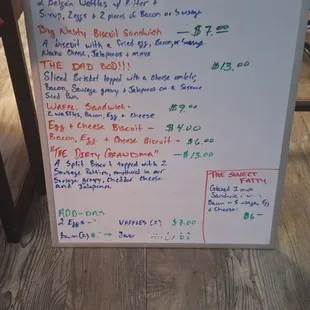 2 Belgian Waffles w/ Butter +
Syrup, 2 Eggs + 2 pieces of Bacon or Sausage
Dry Nasty Biscuit Sandwich — $7.00
A biscuit with a Fried egg, Bacon, or Sausage
Nacho Cheese, Jalapenos + mayo
THE DAD BOD!!! $13.00
Sliced Brisket topped with a cheese omlete,
Bacon, Sausage, gravy + Jalapenos on a Sesame
Seed Bun.
WAFFLE Sandwich - $9.00
2 waffles, Bacon, Egg + Cheese
Egg + Cheese Biscuit - $4.00
Bacon, Egg + Cheese Biscuit - $6.00
"THE DIRTY GRANDMA" — $13.00
A Split Biscuit topped with 2
Sausage Patties, smothered in our
Sausage gravy, Cheddar Cheese
and Jalapenos
THE SWEET
FATTY
Glazed Donut
Sandwich
Bacon or Sausage, Egg
+ Cheese
$6-
ADD-ONS
2 Eggs - WAFFLES (2) $7.00
Bacon (2)